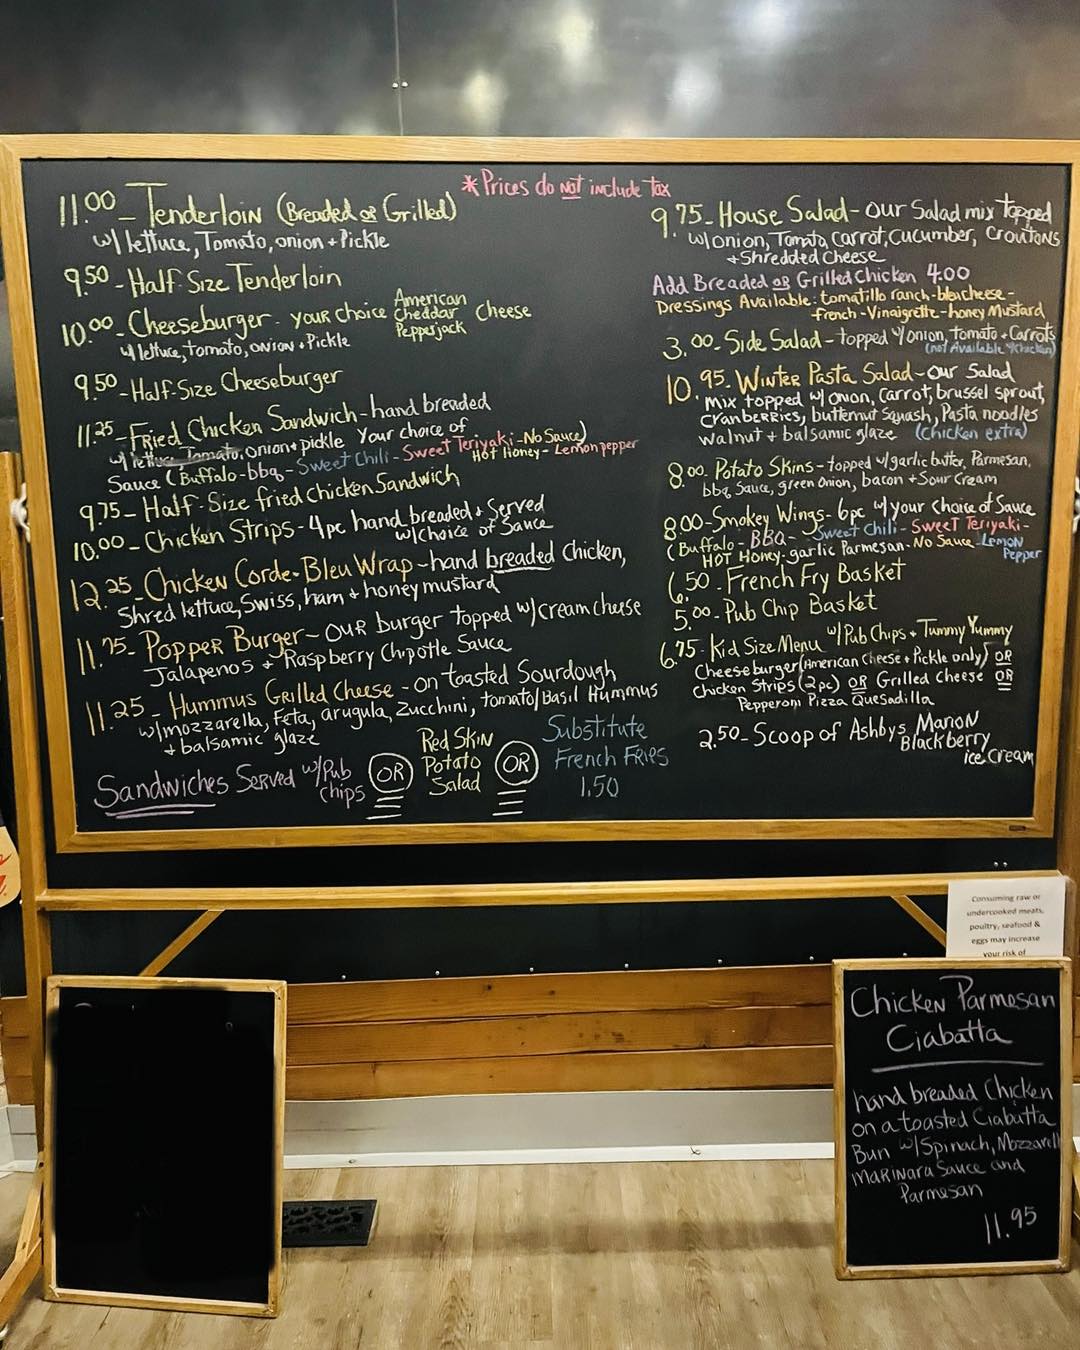 *Prices do not include tax
11.00 - Tenderloin (Breaded or Grilled)
w/ lettuce, Tomato, onion + Pickle
9.50 - Half-Size Tenderloin
10.00 - Cheeseburger - your choice American Cheddar Pepperjack Cheese
w/ lettuce, tomato, onion + Pickle
9.50 - Half-Size Cheeseburger
11.25 - Fried Chicken Sandwich - hand breaded
w/ lettuce, Tomato, onion + pickle Your choice of
Sauce (Buffalo - bbq - Sweet Chili - Sweet Teriyaki - No Sauce)
Hot Honey - Lemon pepper
9.75 - Half-Size fried chicken Sandwich
10.00 - Chicken Strips - 4pc hand breaded + Served
w/ choice of Sauce
12.25 - Chicken Corde-Bleu Wrap - hand breaded Chicken,
Shred lettuce, Swiss, ham + honey mustard
11.75 - Popper Burger - our burger topped w/ cream cheese
Jalapenos + Raspberry Chipotle Sauce
11.25 - Hummus Grilled Cheese - on toasted Sourdough
w/ mozzarella, Feta, arugula, Zucchini, tomato/Basil Hummus
+ balsamic glaze
Sandwiches Served w/ Pub chips OR Red Skin Potato Salad OR Substitute French Fries 1.50
9.75 - House Salad - our Salad mix topped
w/ onion, Tomato, carrot, cucumber, croutons
+ Shredded Cheese
Add Breaded or Grilled Chicken 4.00
Dressings Available: tomatillo ranch - bleucheese -
french - Vinaigrette - honey Mustard
3.00 - Side Salad - topped w/ onion, tomato + Carrots
(not Available w/ chicken)
10.95 - Winter Pasta Salad - our Salad
mix topped w/ onion, carrot, brussel sprout,
cranberries, butternut Squash, Pasta noodles
walnut + balsamic glaze (chicken extra)
8.00 - Potato Skins - topped w/ garlic butter, Parmesan,
bbq Sauce, green onion, bacon + Sour Cream
8.00 - Smokey Wings - 6pc w/ your choice of Sauce
(Buffalo - BBQ - Sweet Chili - Sweet Teriyaki -
HOT Honey - garlic Parmesan - No Sauce - Lemon Pepper
6.50 - French Fry Basket
5.00 - Pub Chip Basket
6.75 - Kid Size Menu w/ Pub Chips + Tummy Yummy
Cheeseburger (American Cheese + Pickle only) OR
Chicken Strips (2pc) OR Grilled Cheese OR
Pepperoni Pizza Quesadilla
2.50 - Scoop of Ashbys Marion
Blackberry
ice Cream
Consuming raw or
undercooked meats,
poultry, seafood &
eggs may increase
your risk of
Chicken Parmesan
Ciabatta
hand breaded Chicken
on a toasted Ciabatta
Bun w/ Spinach, Mozzarell
Marinara Sauce and
Parmesan
11.95